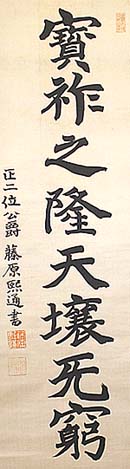 寶祚之隆天壤无窮
正二位公爵藤原熙通書